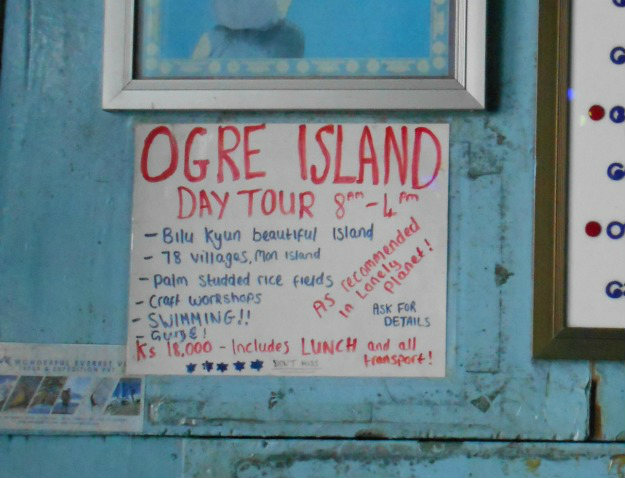 OGRE ISLAND
DAY TOUR 8AM - 4PM
- Bilu Kyun beautiful Island
- 78 villages, Mon Island
- Palm studded rice fields
- Craft workshops
- SWIMMING!!
- GUIDE!
As recommended
in Lonely
Planet!
ASK FOR
DETAILS
Ks 18,000 - Includes LUNCH and all
transport!
DON'T MISS
WONDERFUL EVEREST